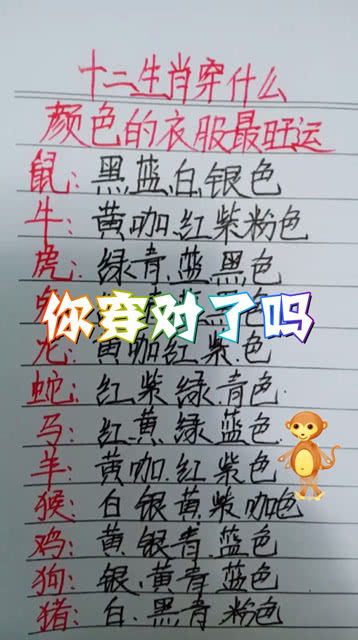 十二生肖穿什么
颜色的衣服最旺运
鼠：黑蓝、白、银色
牛：黄咖、红紫粉色
虎：绿青、蓝黑色
你穿对了吗
龙：黄咖红紫、色
蛇：红紫绿、青色.
马：红、黄、绿蓝色.
羊：黄咖、红、紫色
猴：白银黄紫、咖色
鸡：黄、银青、蓝色
狗：银、黄青、蓝色
猪：白、黑青、粉色